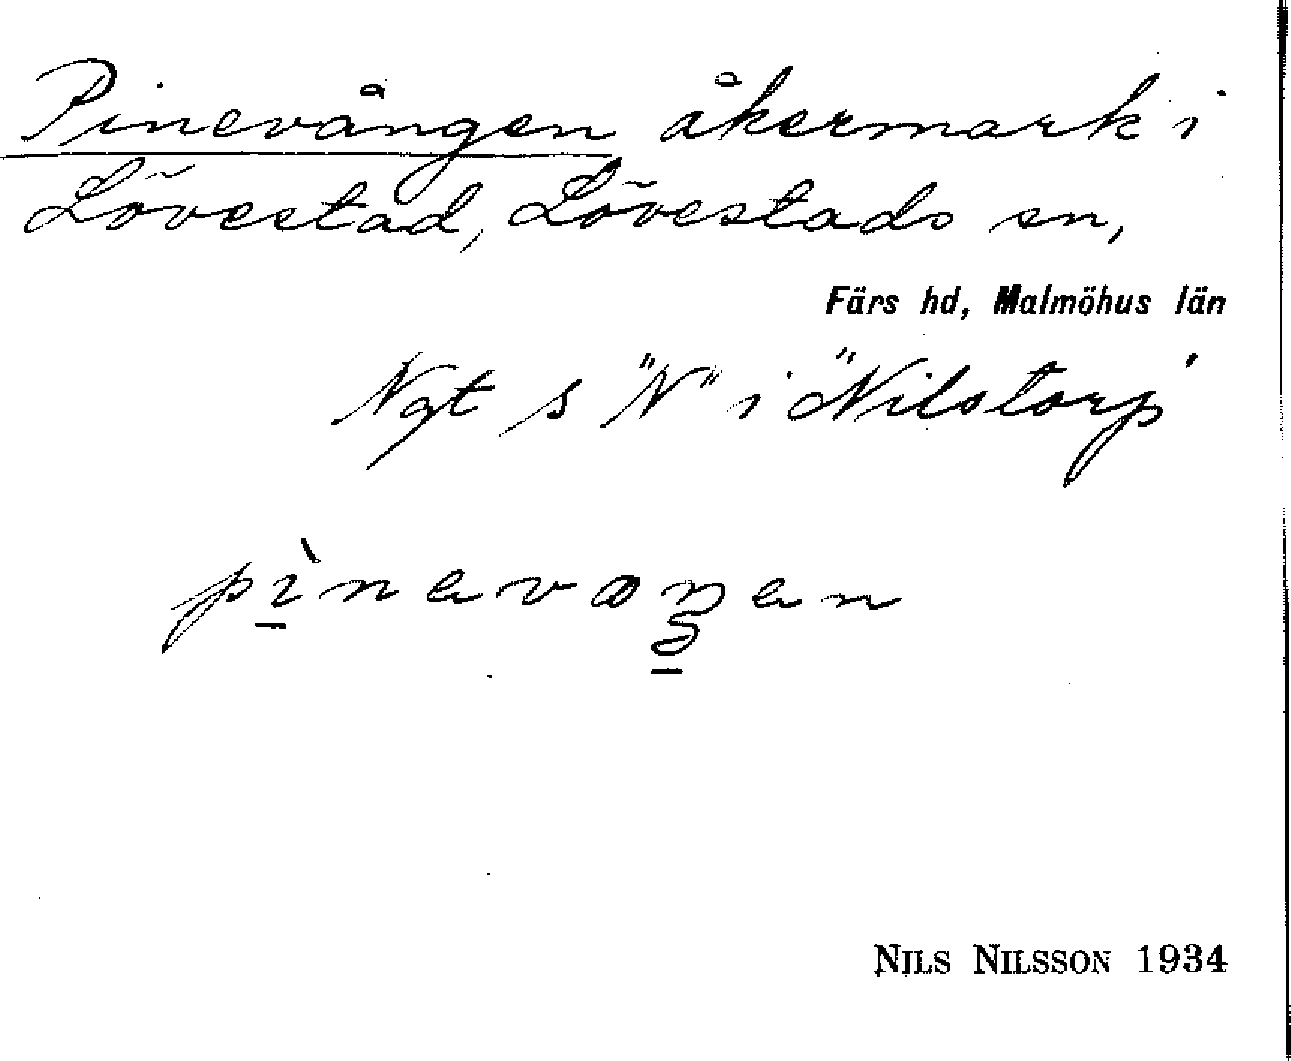 Pinevången åkermark i
Lövestad, Lövestads sn,
Färs hd, Malmöhus län
Ngt s "N" i "Nilstorp"
pìnevaŋen
NILS NILSSON 1934